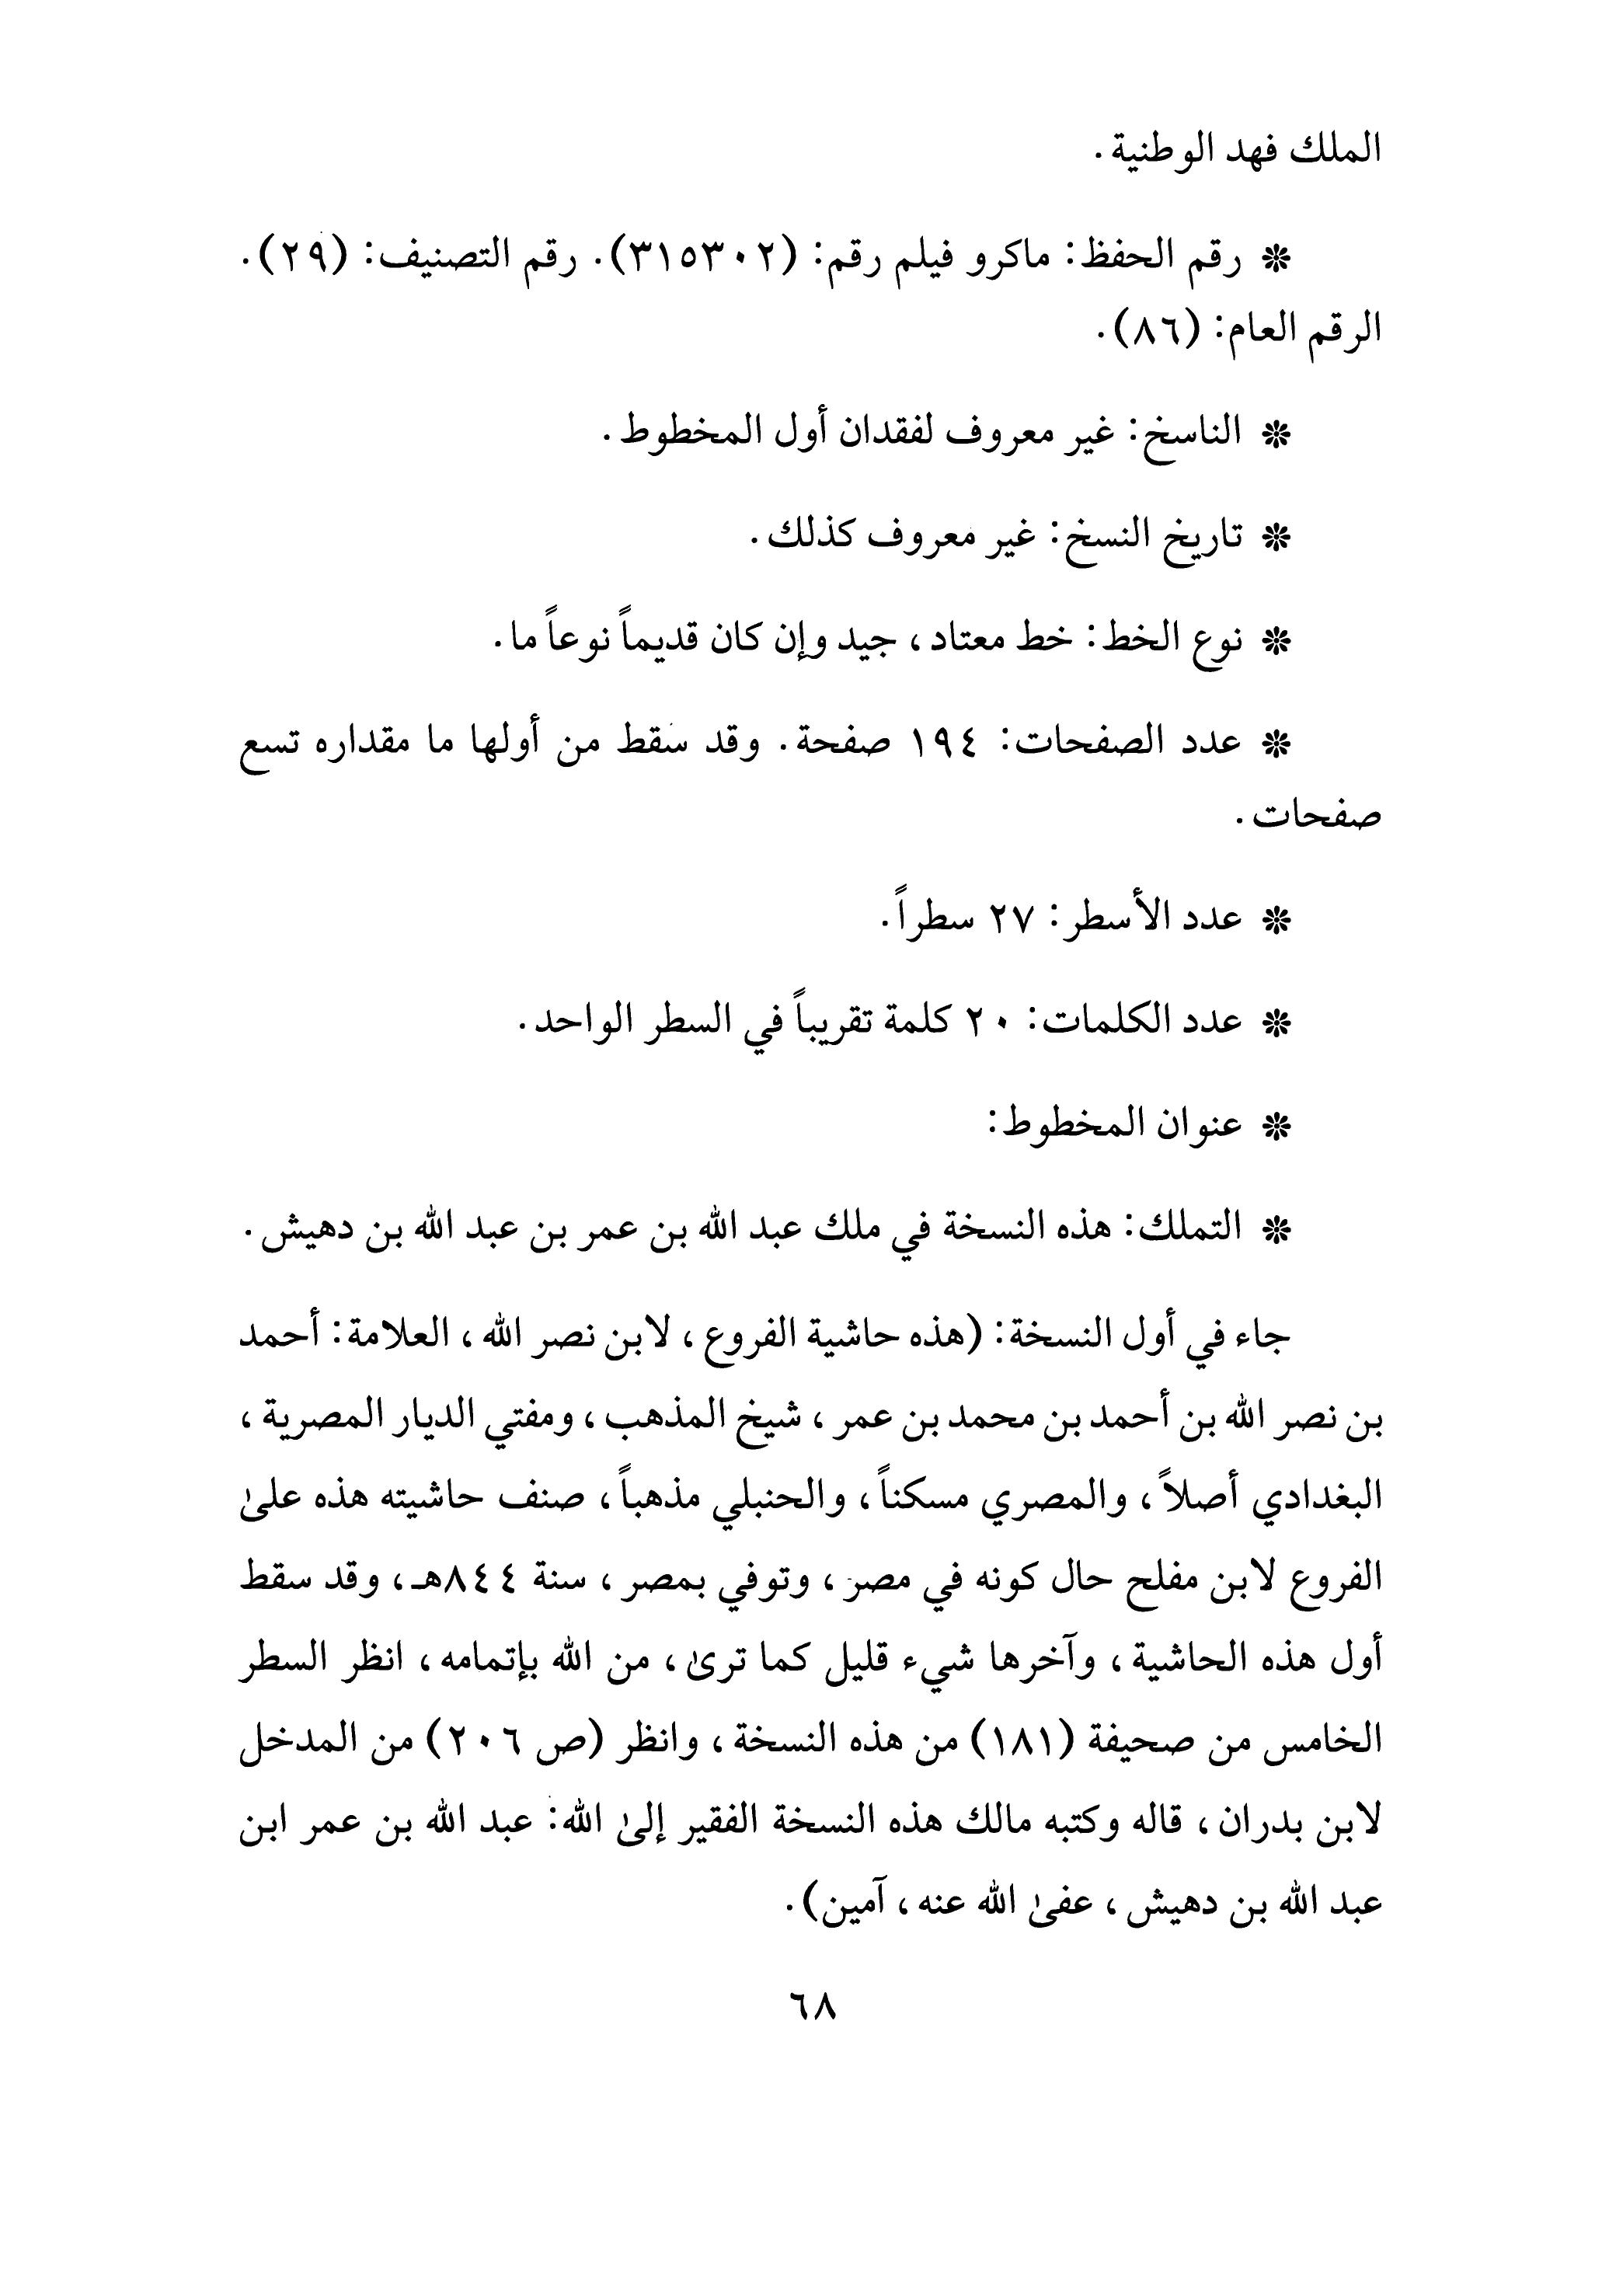 الملك فهد الوطنية.
❊ رقم الحفظ: ماكرو فيلم رقم: (٣١٥٣٠٢). رقم التصنيف: (٢٩).
الرقم العام: (٨٦).
❊ الناسخ: غير معروف لفقدان أول المخطوط.
❊ تاريخ النسخ: غير معروف كذلك.
❊ نوع الخط: خط معتاد، جيد وإن كان قديماً نوعاً ما.
❊ عدد الصفحات: ١٩٤ صفحة. وقد سقط من أولها ما مقداره تسع
صفحات.
❊ عدد الأسطر: ٢٧ سطراً.
❊ عدد الكلمات: ٢٠ كلمة تقريباً في السطر الواحد.
❊ عنوان المخطوط:
❊ التملك: هذه النسخة في ملك عبد الله بن عمر بن عبد الله بن دهيش.
جاء في أول النسخة: (هذه حاشية الفروع، لابن نصر الله، العلامة: أحمد
بن نصر الله بن أحمد بن محمد بن عمر، شيخ المذهب، ومفتي الديار المصرية،
البغدادي أصلاً، والمصري مسكناً، والحنبلي مذهباً، صنف حاشيته هذه علىٰ
الفروع لابن مفلح حال كونه في مصر، وتوفي بمصر، سنة ٨٤٤هـ، وقد سقط
أول هذه الحاشية، وآخرها شيء قليل كما ترىٰ، من الله بإتمامه، انظر السطر
الخامس من صحيفة (١٨١) من هذه النسخة، وانظر (ص ٢٠٦) من المدخل
لابن بدران، قاله وكتبه مالك هذه النسخة الفقير إلىٰ الله: عبد الله بن عمر ابن
عبد الله بن دهيش، عفىٰ الله عنه، آمين).
٦٨